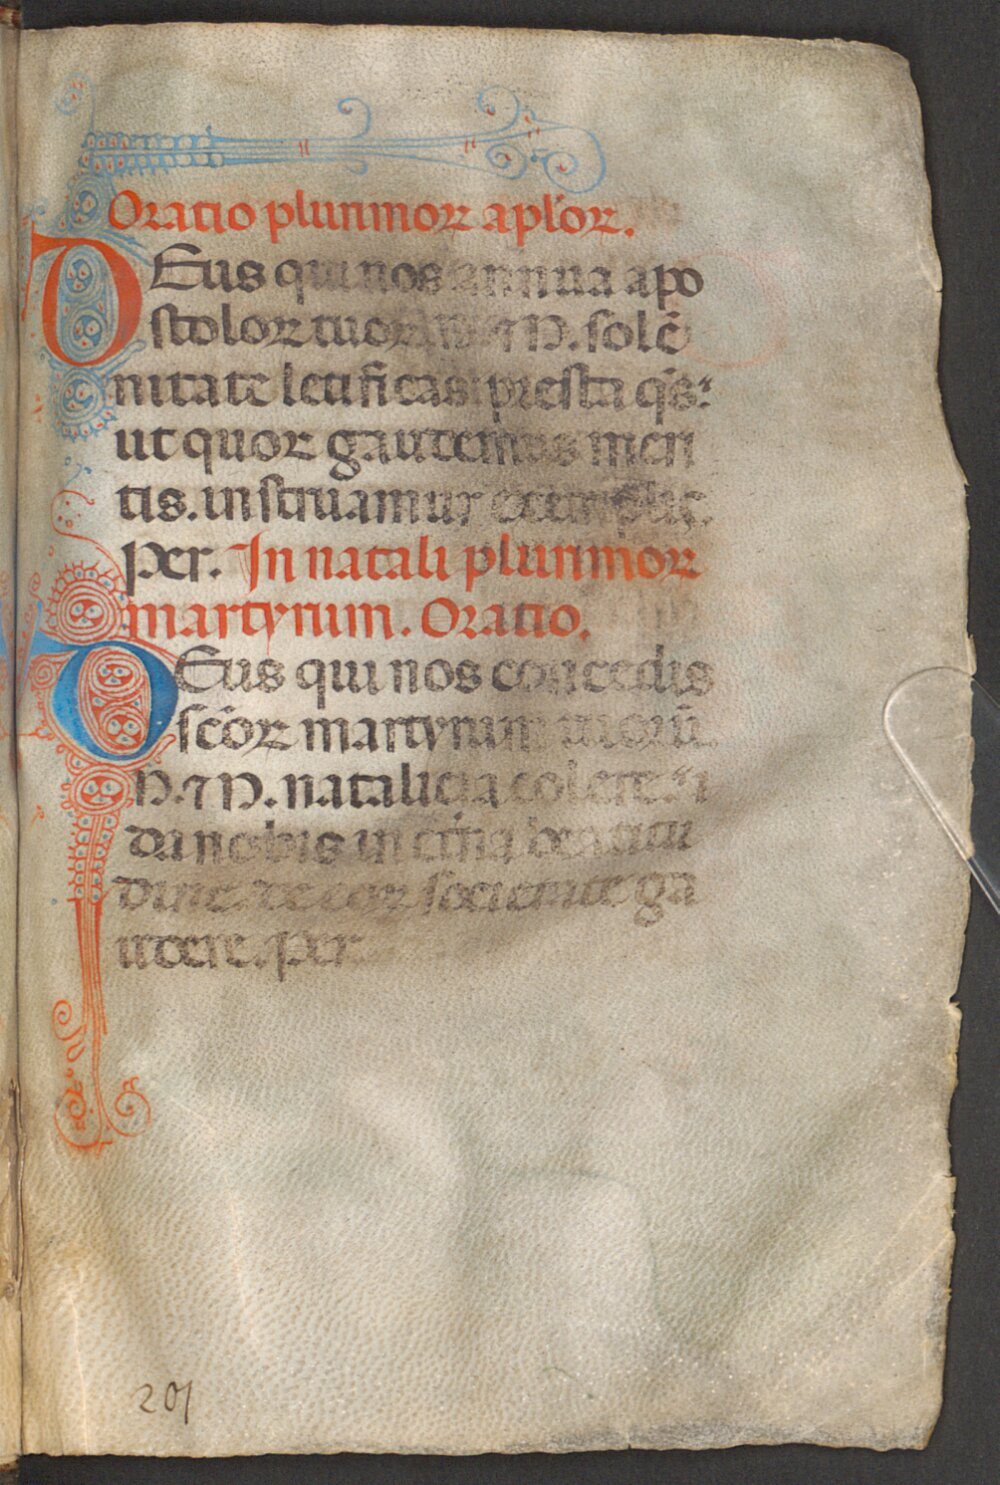 Oratio plurimoꝝ apl'oꝝ.
DEus qui nos annua apo
stoloꝝ tuoꝝ N. ⁊ N. solē
nitate letificas: presta q̄s:
ut quoꝝ gaudemus meri
tis. instruamur exemplis.
Per. In natali plurimoꝝ
martyrum. Oratio.
DEus qui nos concedis
sc̄oꝝ martyrum tuoꝝ
N. ⁊ N. natalicia colere:
da nobis in et̄na beatitu
dine. de eoꝝ societate ga
udere. Per
201